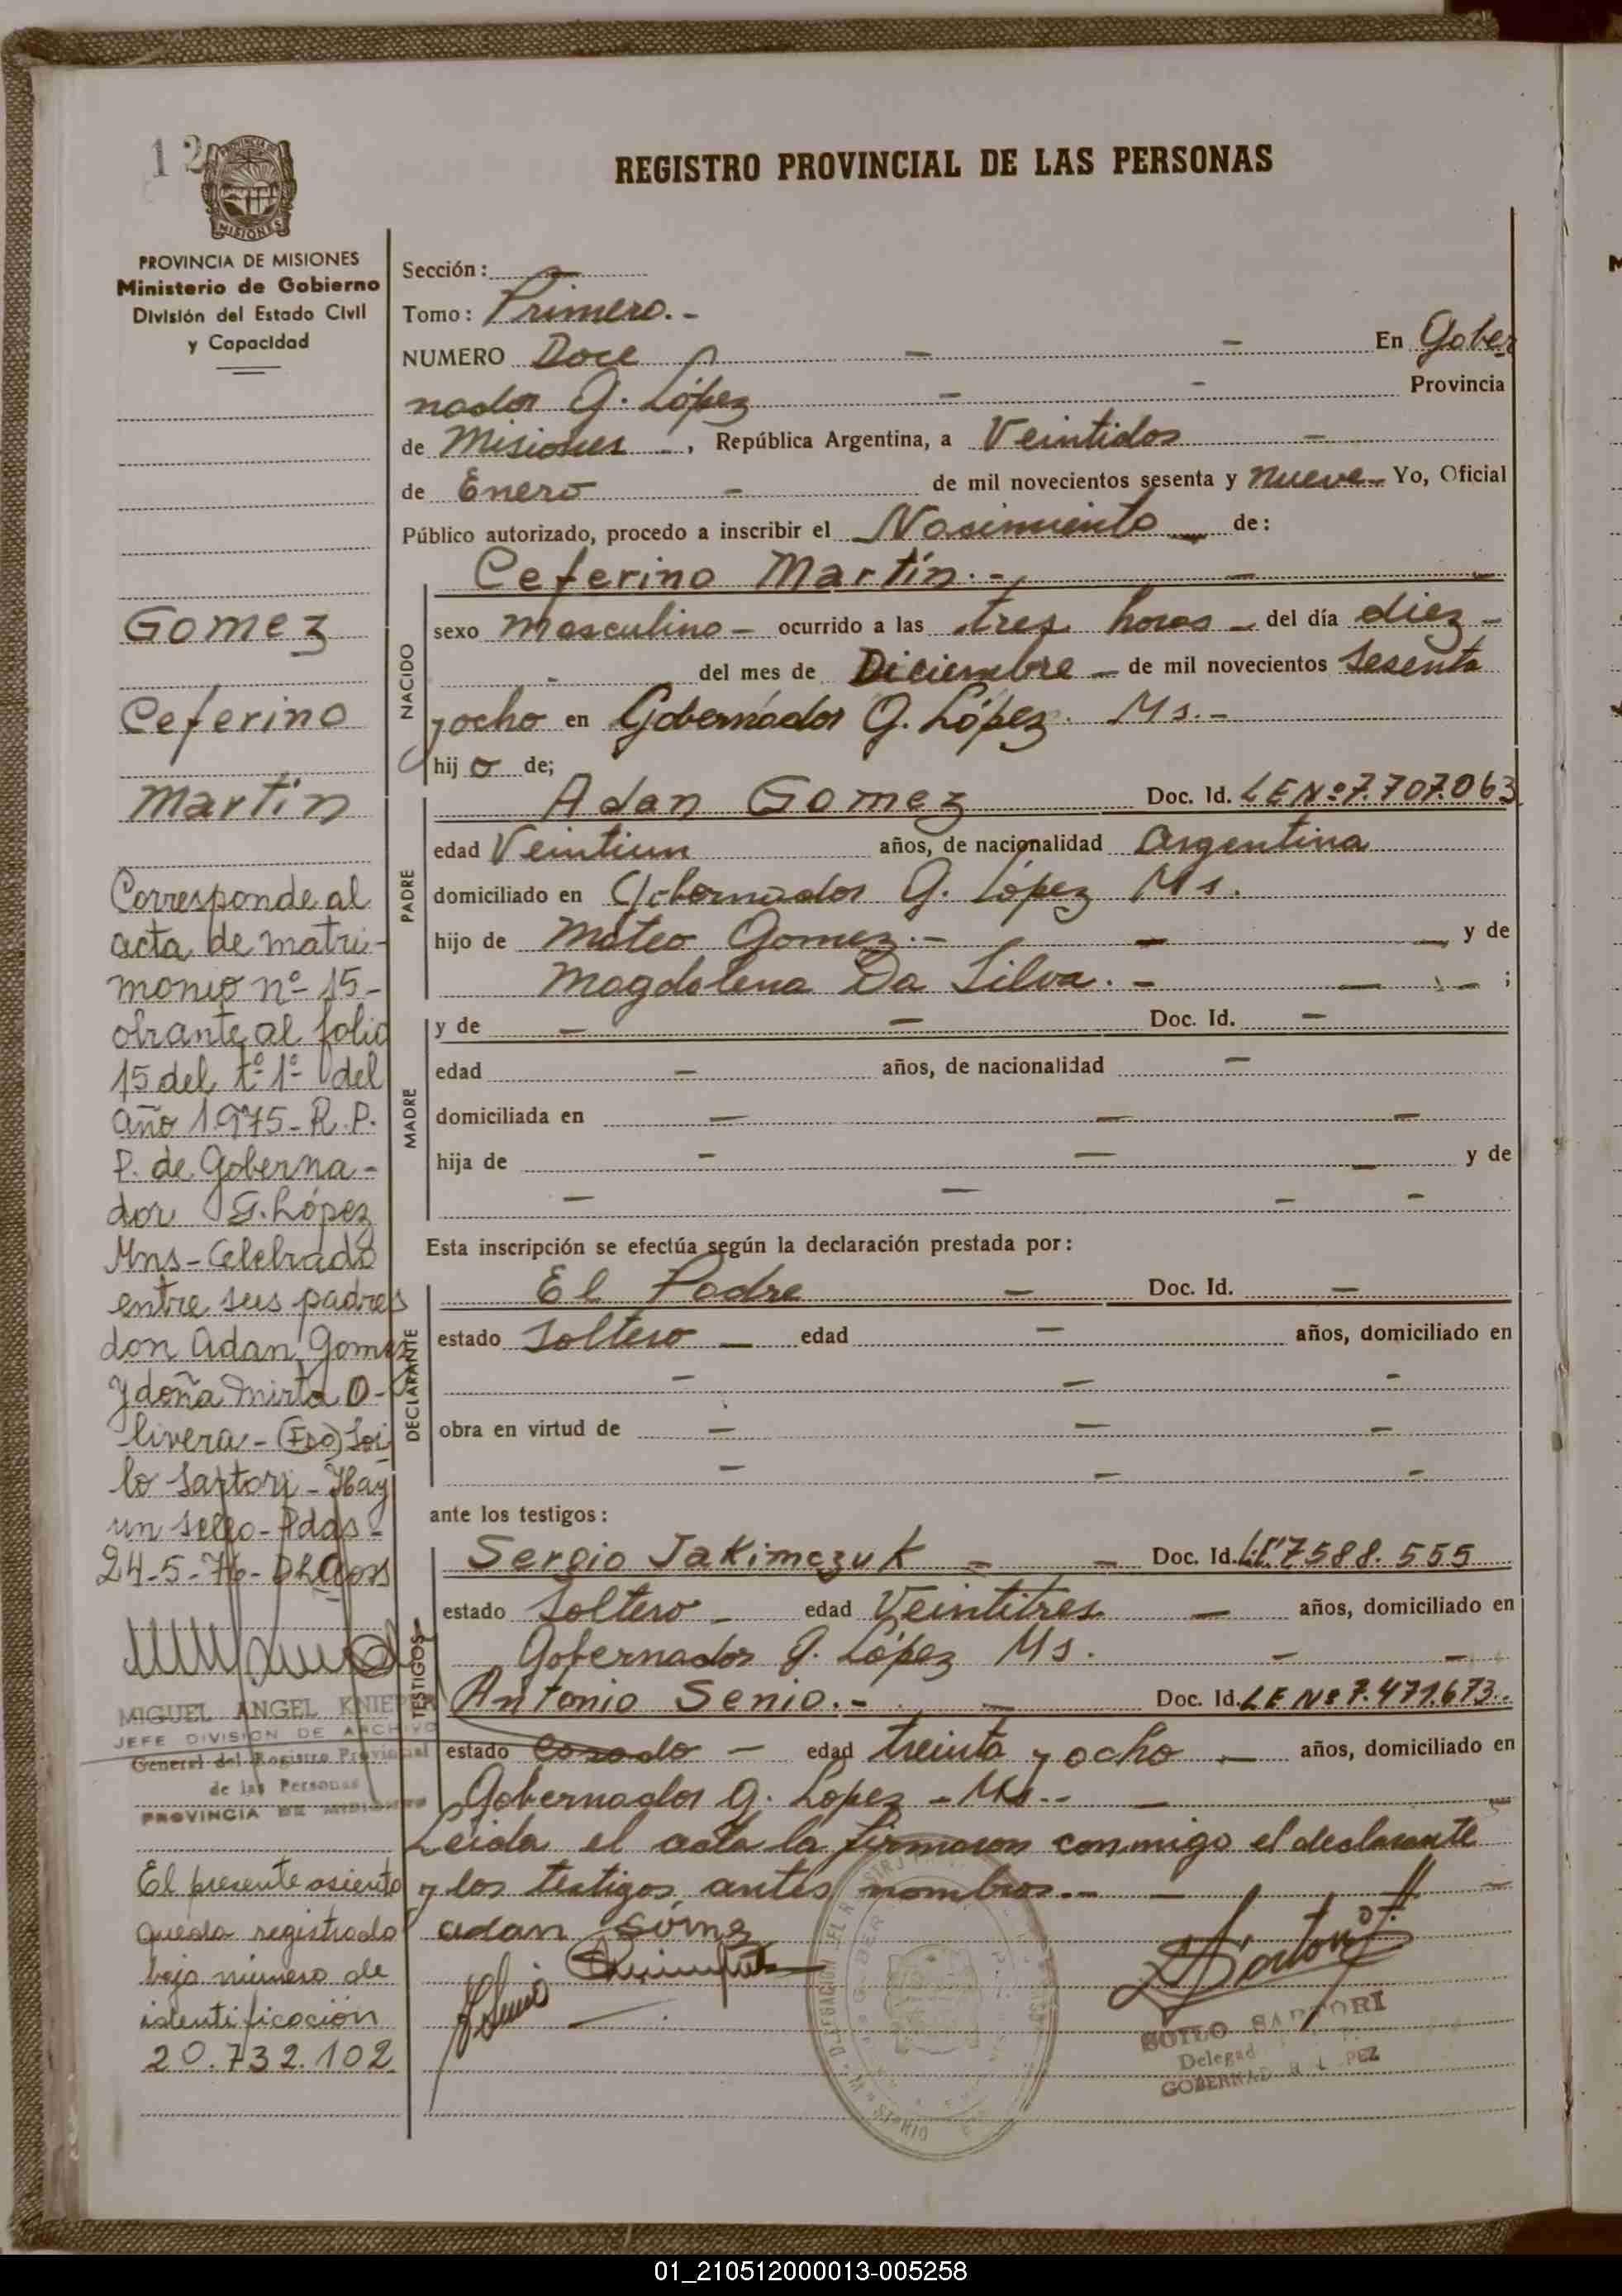 12
REGISTRO PROVINCIAL DE LAS PERSONAS
PROVINCIA DE MISIONES
MISIONES
PROVINCIA DE MISIONES
Ministerio de Gobierno
División del Estado Civil
y Capacidad
Gomez
Ceferino
Martín
Corresponde al
acta de matri-
monio nº 15-
obrante al folio
15 del tº 1º del
año 1.975- R. P.
P. de Goberna-
dor G. López
Mns- Celebrado
entre sus padres
don Adan Gomez
y doña Mirta O-
livera- (Fdo) Soi
lo Sartori- Hay
un sello- Pdas-
24-5-76-
MIGUEL ANGEL KNIEP
JEFE DIVISION DE ARCHIVO
General del Registro Provincial
de las Personas
PROVINCIA DE MISIONES
El presente asiento
queda registrado
bajo número de
identificación
20.732.102
Sección: -
Tomo: Primero.-
NUMERO Doce - - En Gober
nador G. López - - Provincia
de Misiones -, República Argentina, a Veintidos -
de Enero - de mil novecientos sesenta y nueve- Yo, Oficial
Público autorizado, procedo a inscribir el Nasimiento - de:
NACIDO
Ceferino Martín.- - -
sexo masculino - ocurrido a las tres horas - del día diez -
- del mes de Diciembre - de mil novecientos sesenta
y ocho en Gobernador G. López. Ms.-
hijo de;
PADRE
Adan Gomez Doc. Id. LE Nº 7.707.063
edad Veintiun años, de nacionalidad Argentina
domiciliado en Gobernador G. López Ms.
hijo de Mateo Gomez.- - - y de
Magdalena Da Silva.- - - ;
MADRE
y de - - Doc. Id. -
edad - años, de nacionalidad -
domiciliada en - - -
hija de - - - y de
- - - -
Esta inscripción se efectúa según la declaración prestada por:
DECLARANTE
El Padre - Doc. Id. -
estado Soltero - edad - años, domiciliado en
- - -
obra en virtud de - - -
- - -
ante los testigos:
TESTIGOS
Sergio Jakimczuk - - Doc. Id. L.E. 7588.555
estado Soltero - edad Veintitres - años, domiciliado en
Gobernador G. López Ms. - -
Antonio Senio.- - Doc. Id. LE Nº 7.471.673.
estado Casado - edad treinta y ocho - años, domiciliado en
Gobernador G. López - Ms.- - -
Leida el acta la firmaron conmigo el declarante
y los testigos antes nombros.- - -
adan Gómez
SOILO SARTORI
Delegad
GOBERNAD R L PEZ
01_210512000013-005258